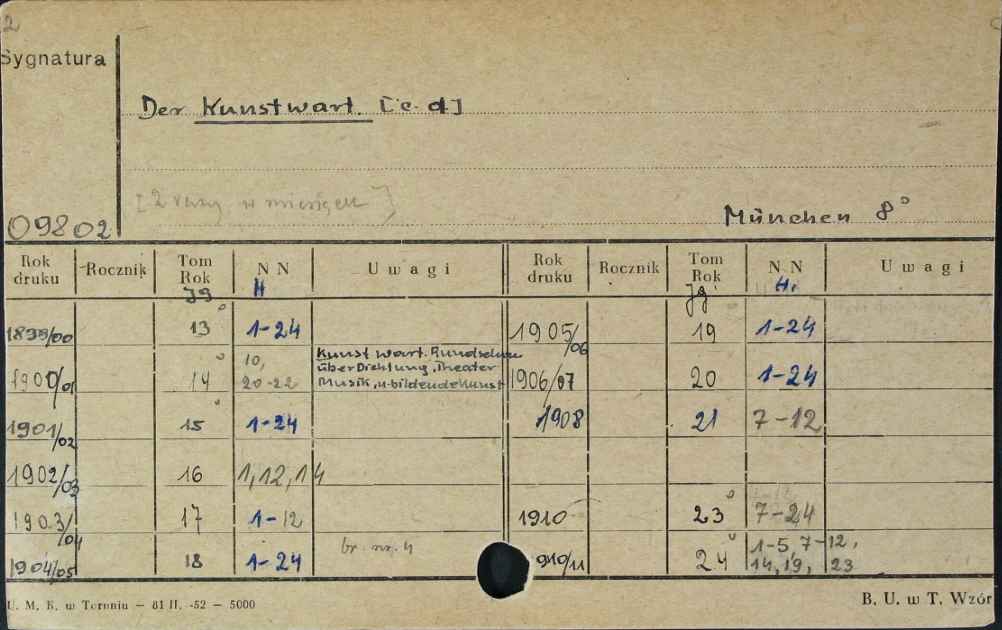 2
Sygnatura
Der Kunstwart. [c. d]
[2 razy w miesiącu]
09802
München 8°
Rok druku Rocznik Tom Rok Jg NN H Uwagi Rok druku Rocznik Tom Rok Jg NN H. Uwagi
1899/00 13° 1-24 1905/06 19 1-24
1900/01 14° 10, 20-22 Kunstwart. Rundschau über Dichtung, Theater Musik, u. bildende Kunst 1906/07 20 1-24
1901/02 15° 1-24 1908 21 7-12
1902/03 16 1, 12, 14
1903/04 17 1-12 1910 23° 7-24
1904/05 18 1-24 br. nr. 4 1910/11 24° 1-5, 7-12, 14, 19, 23
U. M. K. w Toruniu — 81 II. -52 — 5000
B. U. w T. Wzór